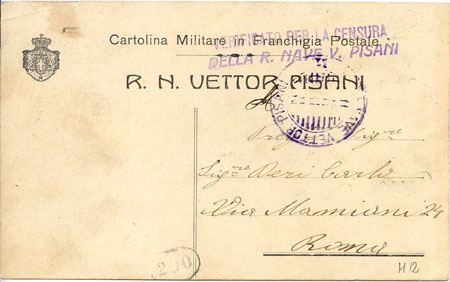 Cartolina Militare in Franchigia Postale
VERIFICATO PER LA CENSURA
DELLA R. NAVE V. PISANI
R. N. VETTOR PISANI
NAVE VETTOR PISANI
Sig.re Deri Carlo
Via Mamiani 24
Roma
200
H12